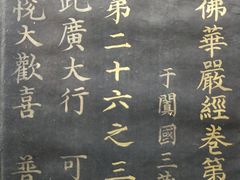 佛華嚴經卷第
于闐國三藏
第二十六之三
此廣大行 可
悅大歡喜 普